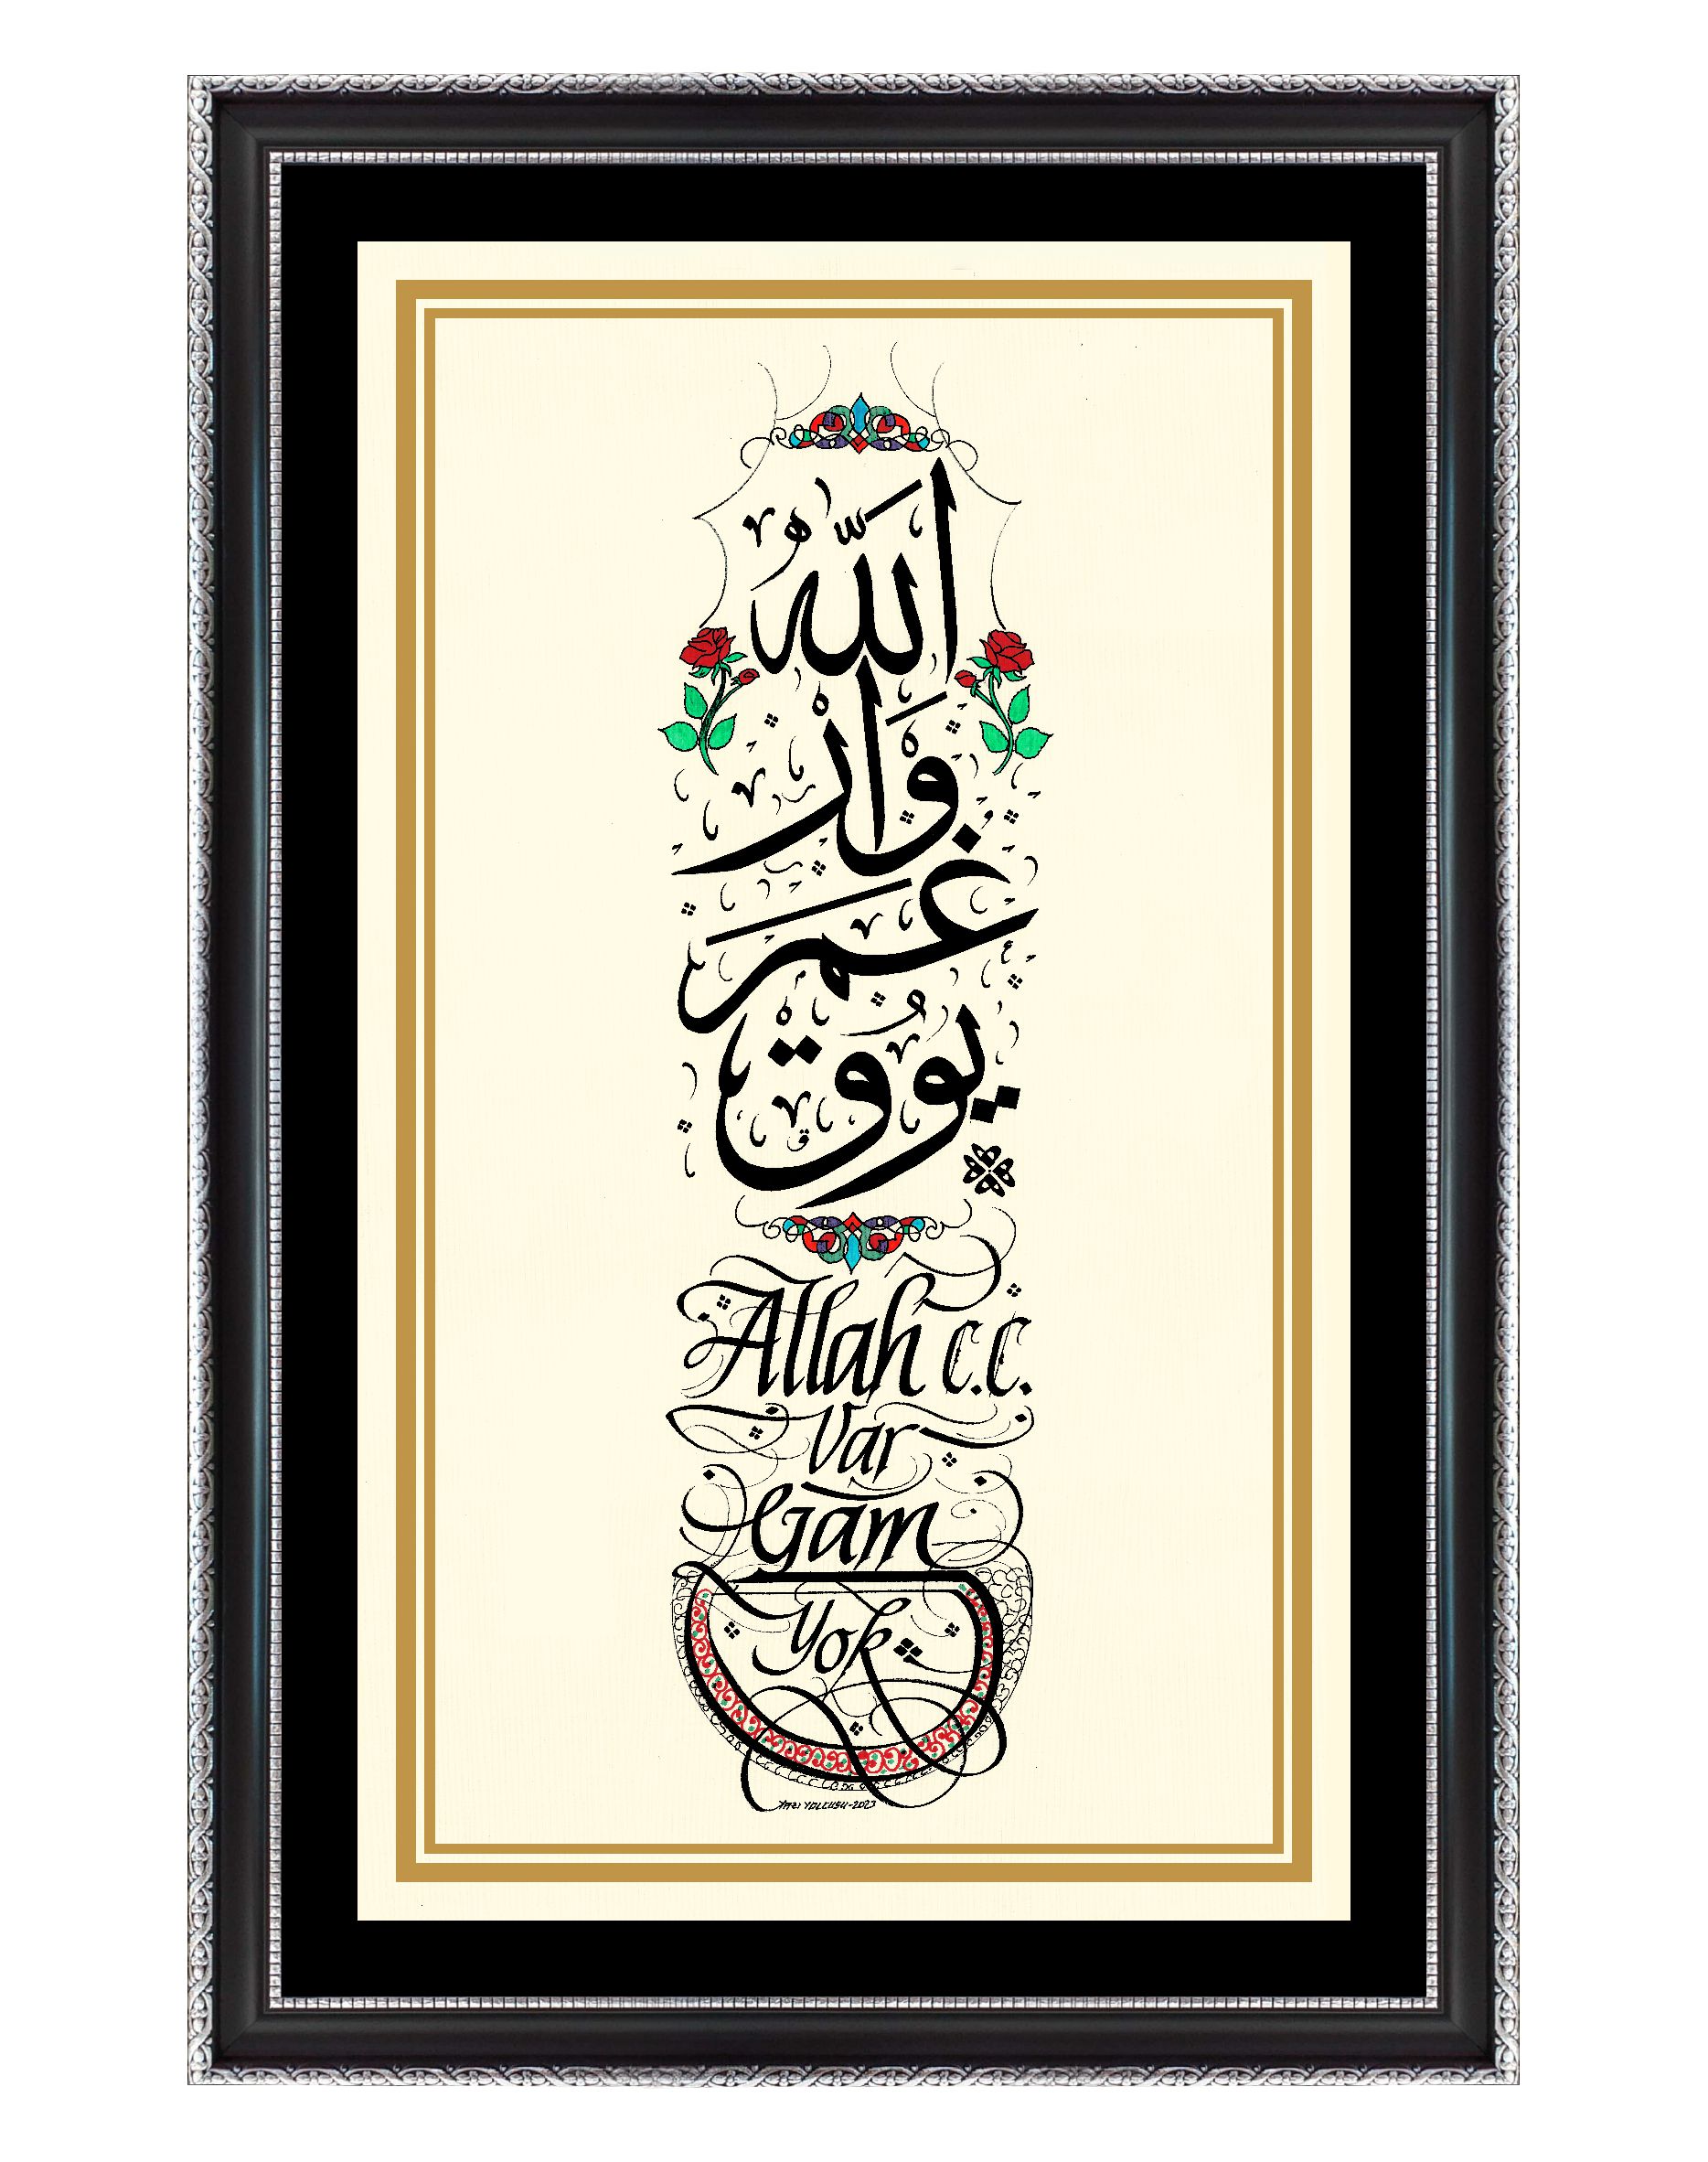 الله
وار
غم
يوق
Allah c.c.
Var
Gam
Yok
YOLCUSU-2023